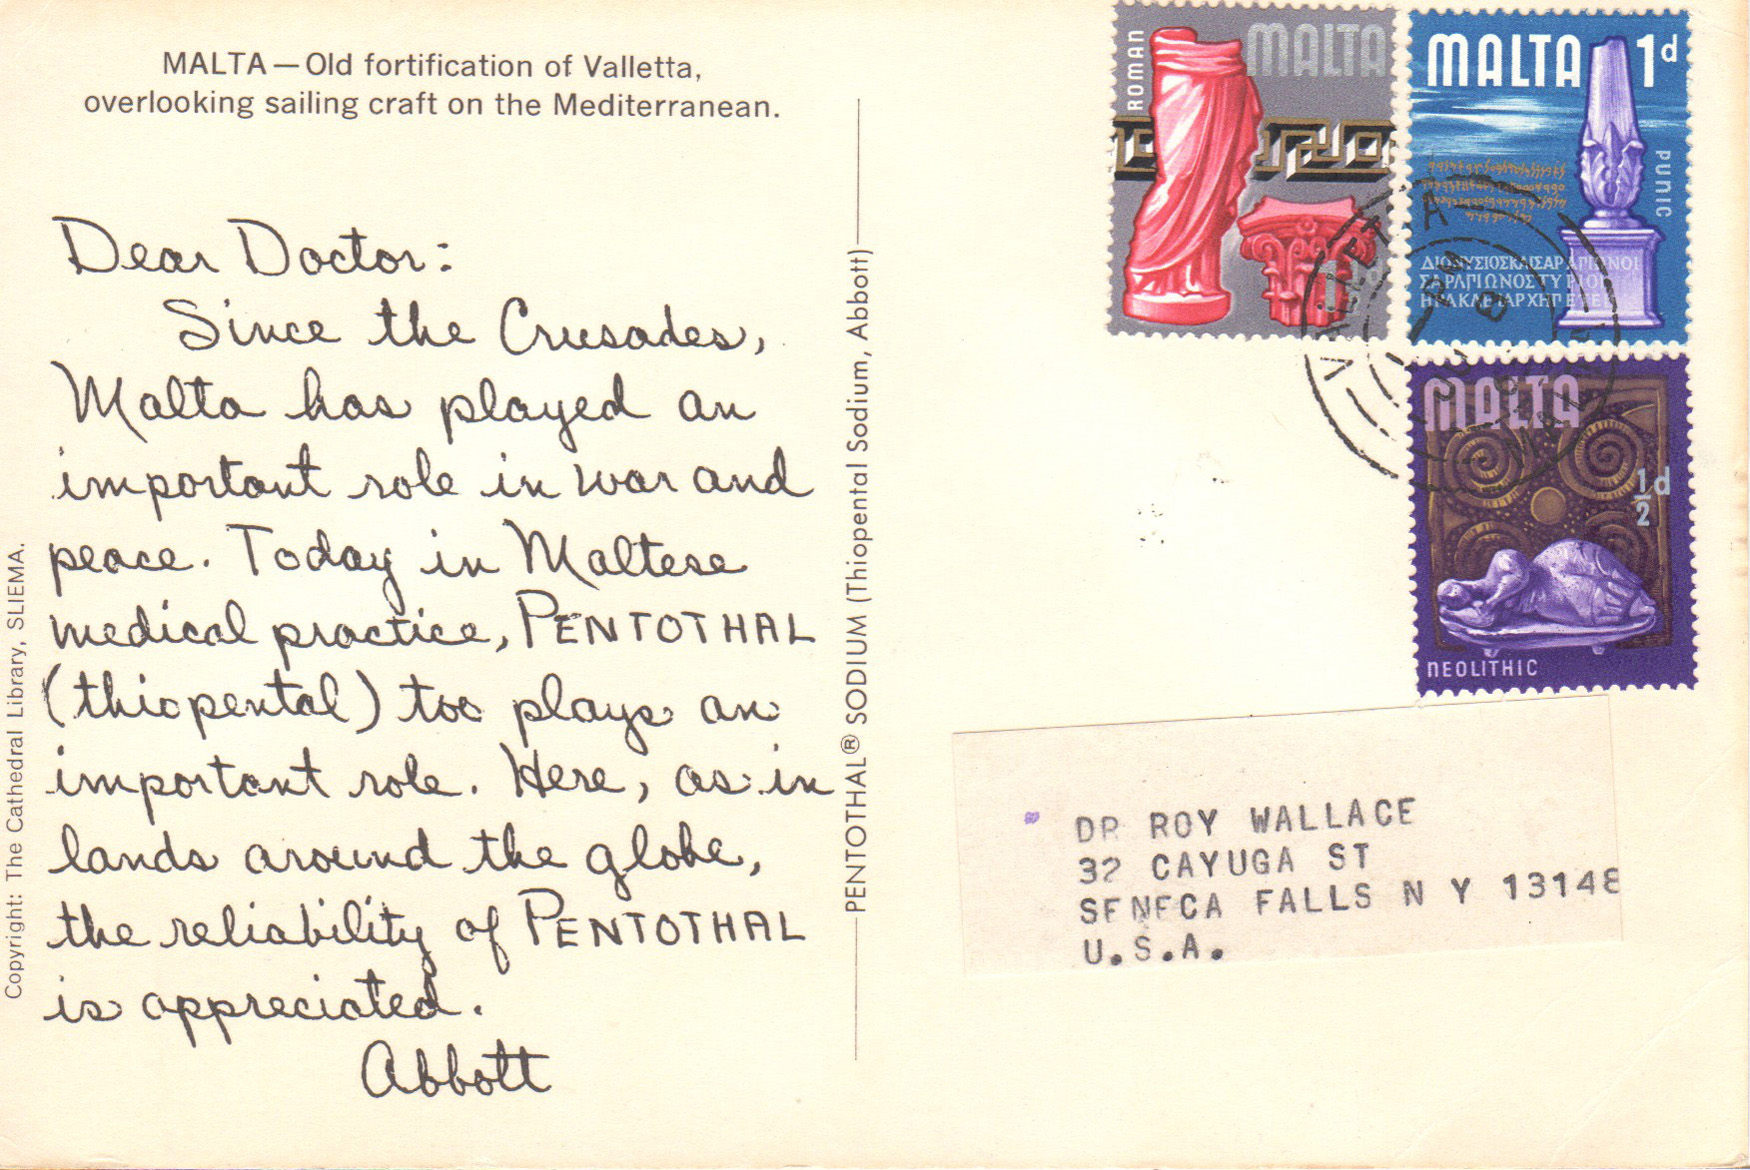 MALTA — Old fortification of Valletta,
overlooking sailing craft on the Mediterranean.
Dear Doctor:
Since the Crusades,
Malta has played an
important role in war and
peace. Today in Maltese
medical practice, PENTOTHAL
(thiopental) too plays an
important role. Here, as in
lands around the globe,
the reliability of PENTOTHAL
is appreciated.
Abbott
Copyright: The Cathedral Library, SLIEMA.
PENTOTHAL® SODIUM (Thiopental Sodium, Abbott)
ROMAN
MALTA
MALTA 1d
PUNIC
MALTA
½d
NEOLITHIC
VALLETTA
DR ROY WALLACE
32 CAYUGA ST
SENECA FALLS N Y 13148
U.S.A.